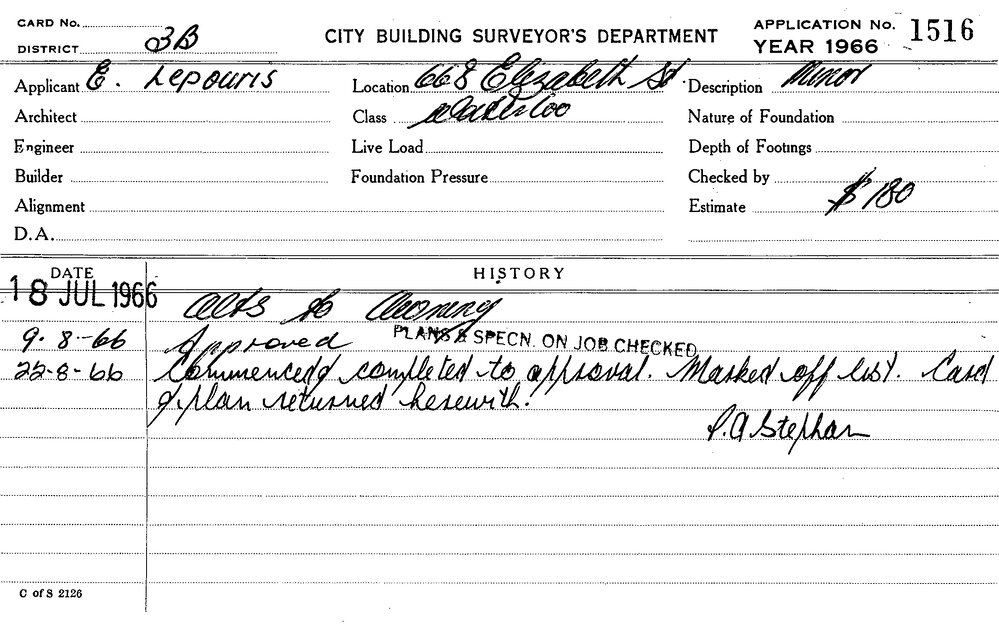 CARD No.
DISTRICT 3B
CITY BUILDING SURVEYOR'S DEPARTMENT
APPLICATION No. 1516
YEAR 1966
Applicant E. Lepouris
Location 668 Elizabeth St.
Description Minor
Architect
Class Waterloo
Nature of Foundation
Engineer
Live Load
Depth of Footings
Builder
Foundation Pressure
Checked by
Alignment
Estimate $180
D.A.
DATE
HISTORY
18 JUL 1966 Alts to Awning
9-8-66 Approved PLANS & SPECN. ON JOB CHECKED
22-8-66 Commenced & completed to approval. Marked off list. Card
& plan returned herewith.
P.A Stephan
C of S 2126